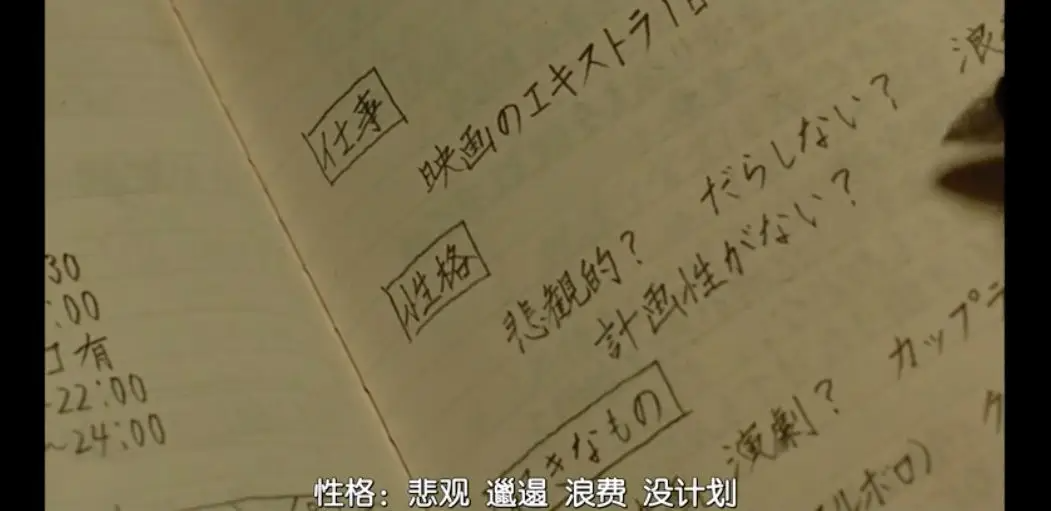 30
:00
有
22:00
~24:00
仕事
映画のエキストラ
性格
悲観的? だらしない? 浪
計画性がない?
きなもの
演劇? カップ
ルボロ)
性格：悲观 邋遢 浪费 没计划